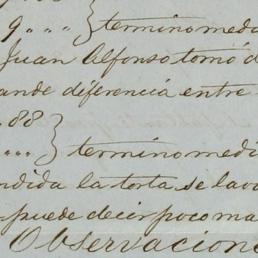 9 " " " } termino medi
Juan Alfonso tomó d
ande diferencia entre
.88
" " " } termino medi
ndida la torta se lava
puede decir poco ma
Observacione